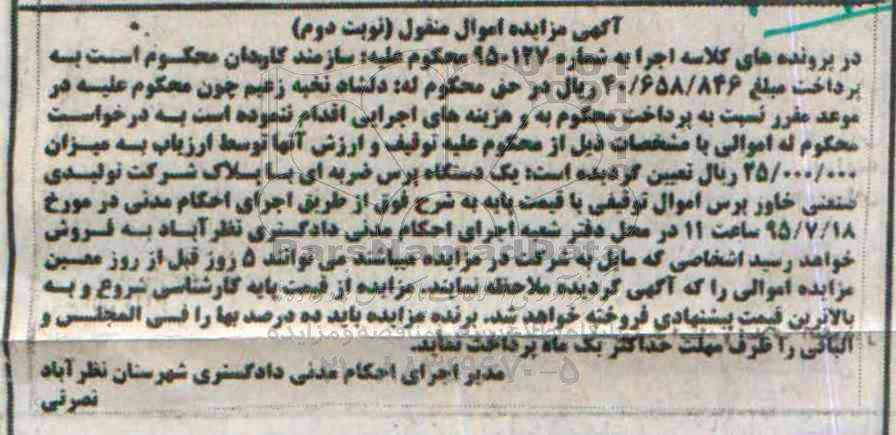 آگهی مزایده اموال منقول (نوبت دوم)
در پرونده های کلاسه اجرا به شماره ۹۵۰۱۲۷ محکوم علیه: سازمند کاردان محکوم است به
پرداخت مبلغ ۴۰/۶۵۸/۸۴۶ ریال در حق محکوم له: دلشاد نخبه زعیم چون محکوم علیه در
موعد مقرر نسبت به پرداخت محکوم به و هزینه های اجرایی اقدام ننموده است به درخواست
محکوم له اموالی با مشخصات ذیل از محکوم علیه توقیف و ارزش آنها توسط ارزیاب به میزان
۴۵/۰۰۰/۰۰۰ ریال تعیین گردیده است: یک دستگاه پرس ضربه ای با پلاک شرکت تولیدی
صنعتی خاور پرس اموال توقیفی با قیمت پایه به شرح فوق از طریق اجرای احکام مدنی در مورخ
۹۵/۷/۱۸ ساعت ۱۱ در محل دفتر شعبه اجرای احکام مدنی دادگستری نظرآباد به فروش
خواهد رسید اشخاصی که مایل به شرکت در مزایده میباشند می توانند ۵ روز قبل از روز معین
مزایده اموالی را که آگهی گردیده ملاحظه نمایند. مزایده از قیمت پایه کارشناسی شروع و به
بالاترین قیمت پیشنهادی فروخته خواهد شد. برنده مزایده باید ده درصد بها را فی المجلس و
الباقی را ظرف مهلت حداکثر یک ماه پرداخت نماید.
مدیر اجرای احکام مدنی دادگستری شهرستان نظرآباد
نصرتی
ParsNamadData